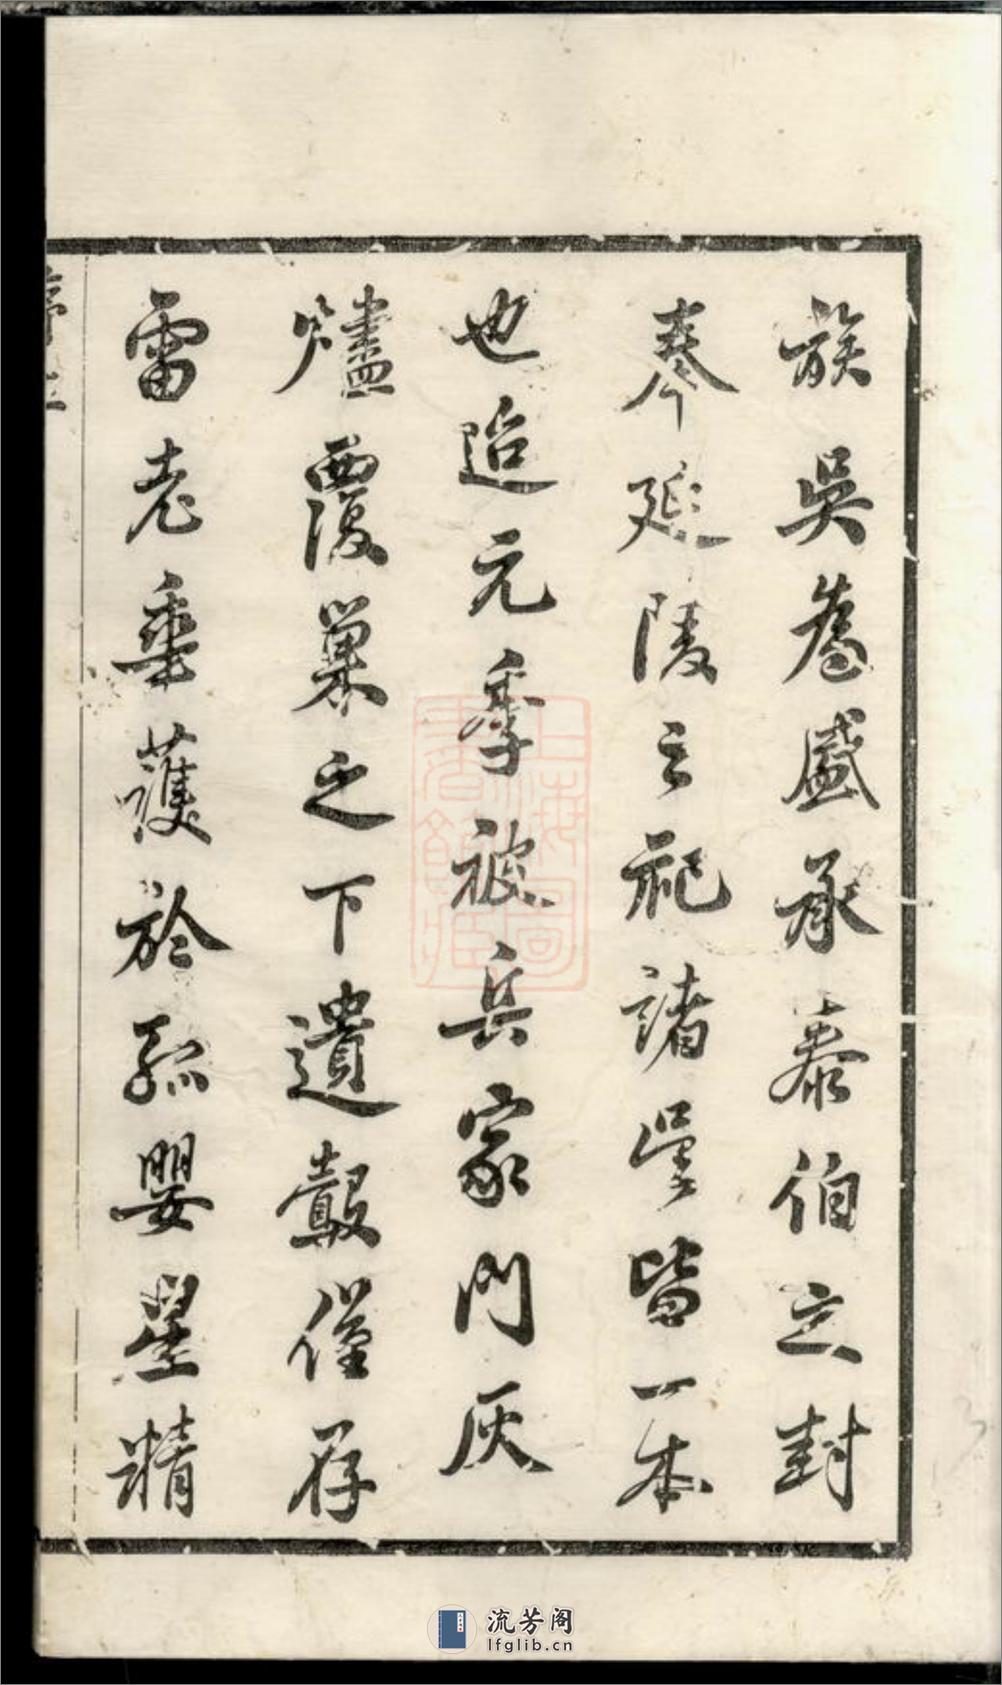 族吳舊盛承泰伯之封
奉延陵之祀諸吳皆一本
也迨元季被兵家門灰
燼覆巢之下遺鷇僅存
雷老垂護於孤嬰星精
上海圖書館藏
流芳阁
lfglib.cn